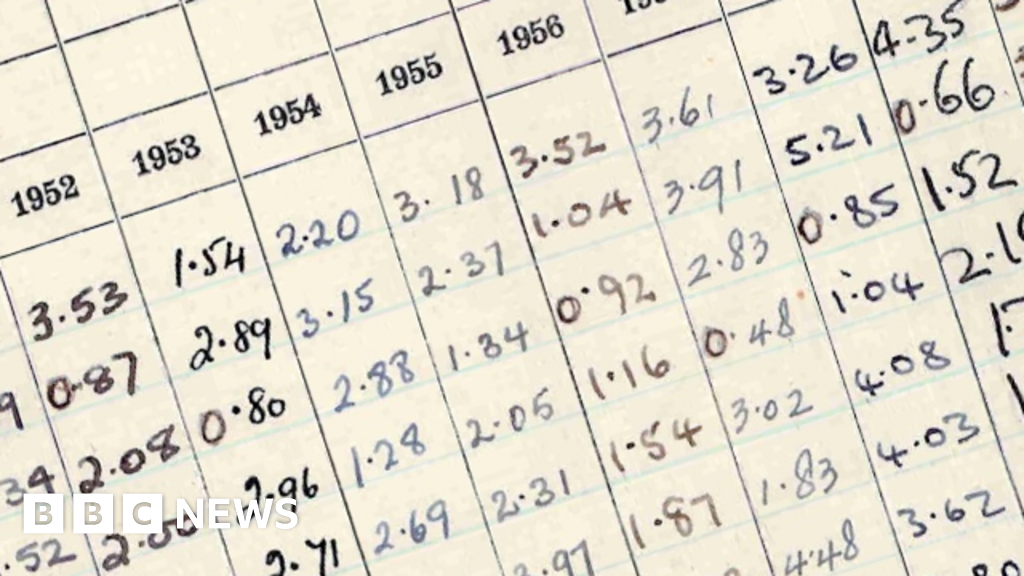 1952 1953 1954 1955 1956
3.53 1.54 2.20 3.18 3.52 3.61 3.26 4.35
9 0.87 2.89 3.15 2.37 1.04 3.91 5.21 0.66
34 2.08 0.80 2.88 1.34 0.92 2.83 0.85 1.52
.52 2.96 1.28 2.05 1.16 0.48 1.04 2.1
2.71 2.69 2.31 1.54 3.02 4.08
.97 1.87 1.83 4.03
4.48 3.62
BBC NEWS